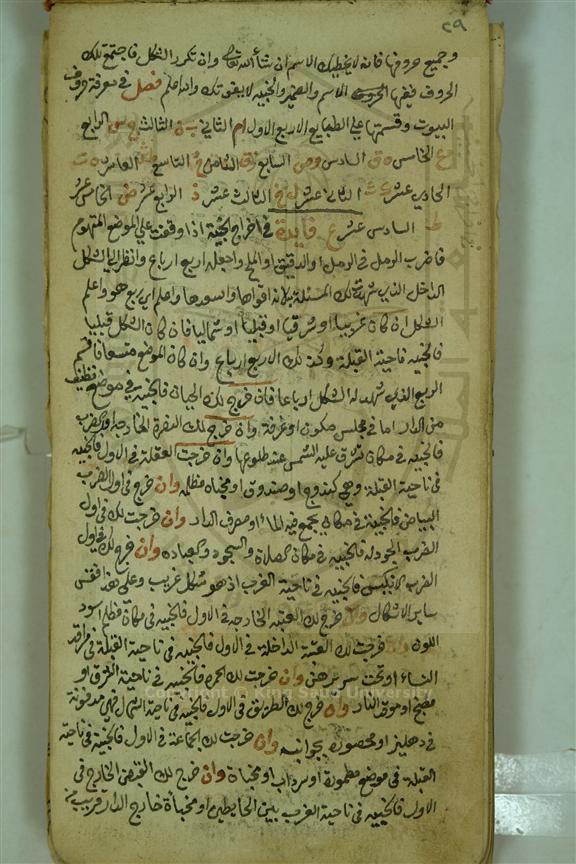 ٢٩
وجميع حروفها فانه لا يخطيك الاسم ان شاء الله تعالى وان تكرر الشكل فاجتمع تلك
الحروف فيها الاسم والضمير والخبيه لا يفوتك والله اعلم فصل في معرفة حروف
البيوت وقسمتها علي الطبايع الاربع الاول ام الثاني ب ن الثالث ج س الرابع
الخامس ه ق السادس و ص السابع الثامن التاسع العاشر
الحادي عشر ك ث الثاني عشر ل خ الثالث عشر ذ الرابع عشر ض الخامس عشر
ظ السادس عشر غ فايدة في اخراج الخبية اذا وقفت علي الموضع المتهوم
فاضرب الرمل في الرمل او الدقيق او الملح واجعله اربع ارباع وانظر الي الشكل
الداخل الذي شهد تلك المسئلة بلانه اقواها واسعدها واعلم اي ربع هو واعلم
الشكل ان كان غربيا او شرقيا او قبليا او شماليا فان كان الشكل قبليا
فالخبيه ناحية القبلة وكذلك الاربع ارباع وان كان الموضع متسعا فاقسم
الربع الذي شهد له الشكل ارباعا فان خرج لك الحيان فالخبيه في موضع نظيف
من الدار اما في مجلس مكون او غرفة وان خرج لك النصرة الخارجه اول الضرب
فالخبيه في مكان تشرق عليه الشمس عند طلوعها وان خرجت العقلة في الاول فالخبيه
في ناحية القبلة وهي كندوج او صندوق او مخباه مظلمه وان خرج في اول الضرب
البياض فالخبية في مكان يجمع فيه الماء او مصرف الدار وان خرجت لك في اول
الضرب الجودله فالخبيه في مكان الصلاة والسجود والعباده وان خرج لك في اول
الضرب الانكيس فالخبيه في ناحية الغرب اذ هو شكل غريب وعلي هذا فقس
ساير الاشكال وان خرج لك العتبه الخارجه في الاول فالخبيه في مكان مظلم اسود
اللون وان خرجت لك العتبة الداخلة في الاول فالخبيه في ناحية القبلة في مراقد
النساء او تحت سريرهن وان خرجت لك الحمره فالخبيه في ناحية الشرق او
مطبخ او موقد النار وان خرج لك الطريق في الاول فالخبيه في ناحية الشمال فهي مدفونة
في دهليز او محصوره بجوانبه وان خرجت لك الجماعة في الاول فالخبيه في ناحية
القبلة في موضع مطمورة او سرداب او مخباة وان خرج لك القبض الخارج في
الاول فالخبيه في ناحية الغرب بين الحايطين او مخباة خارج الدار قريب منه
Copyright © King Saud University